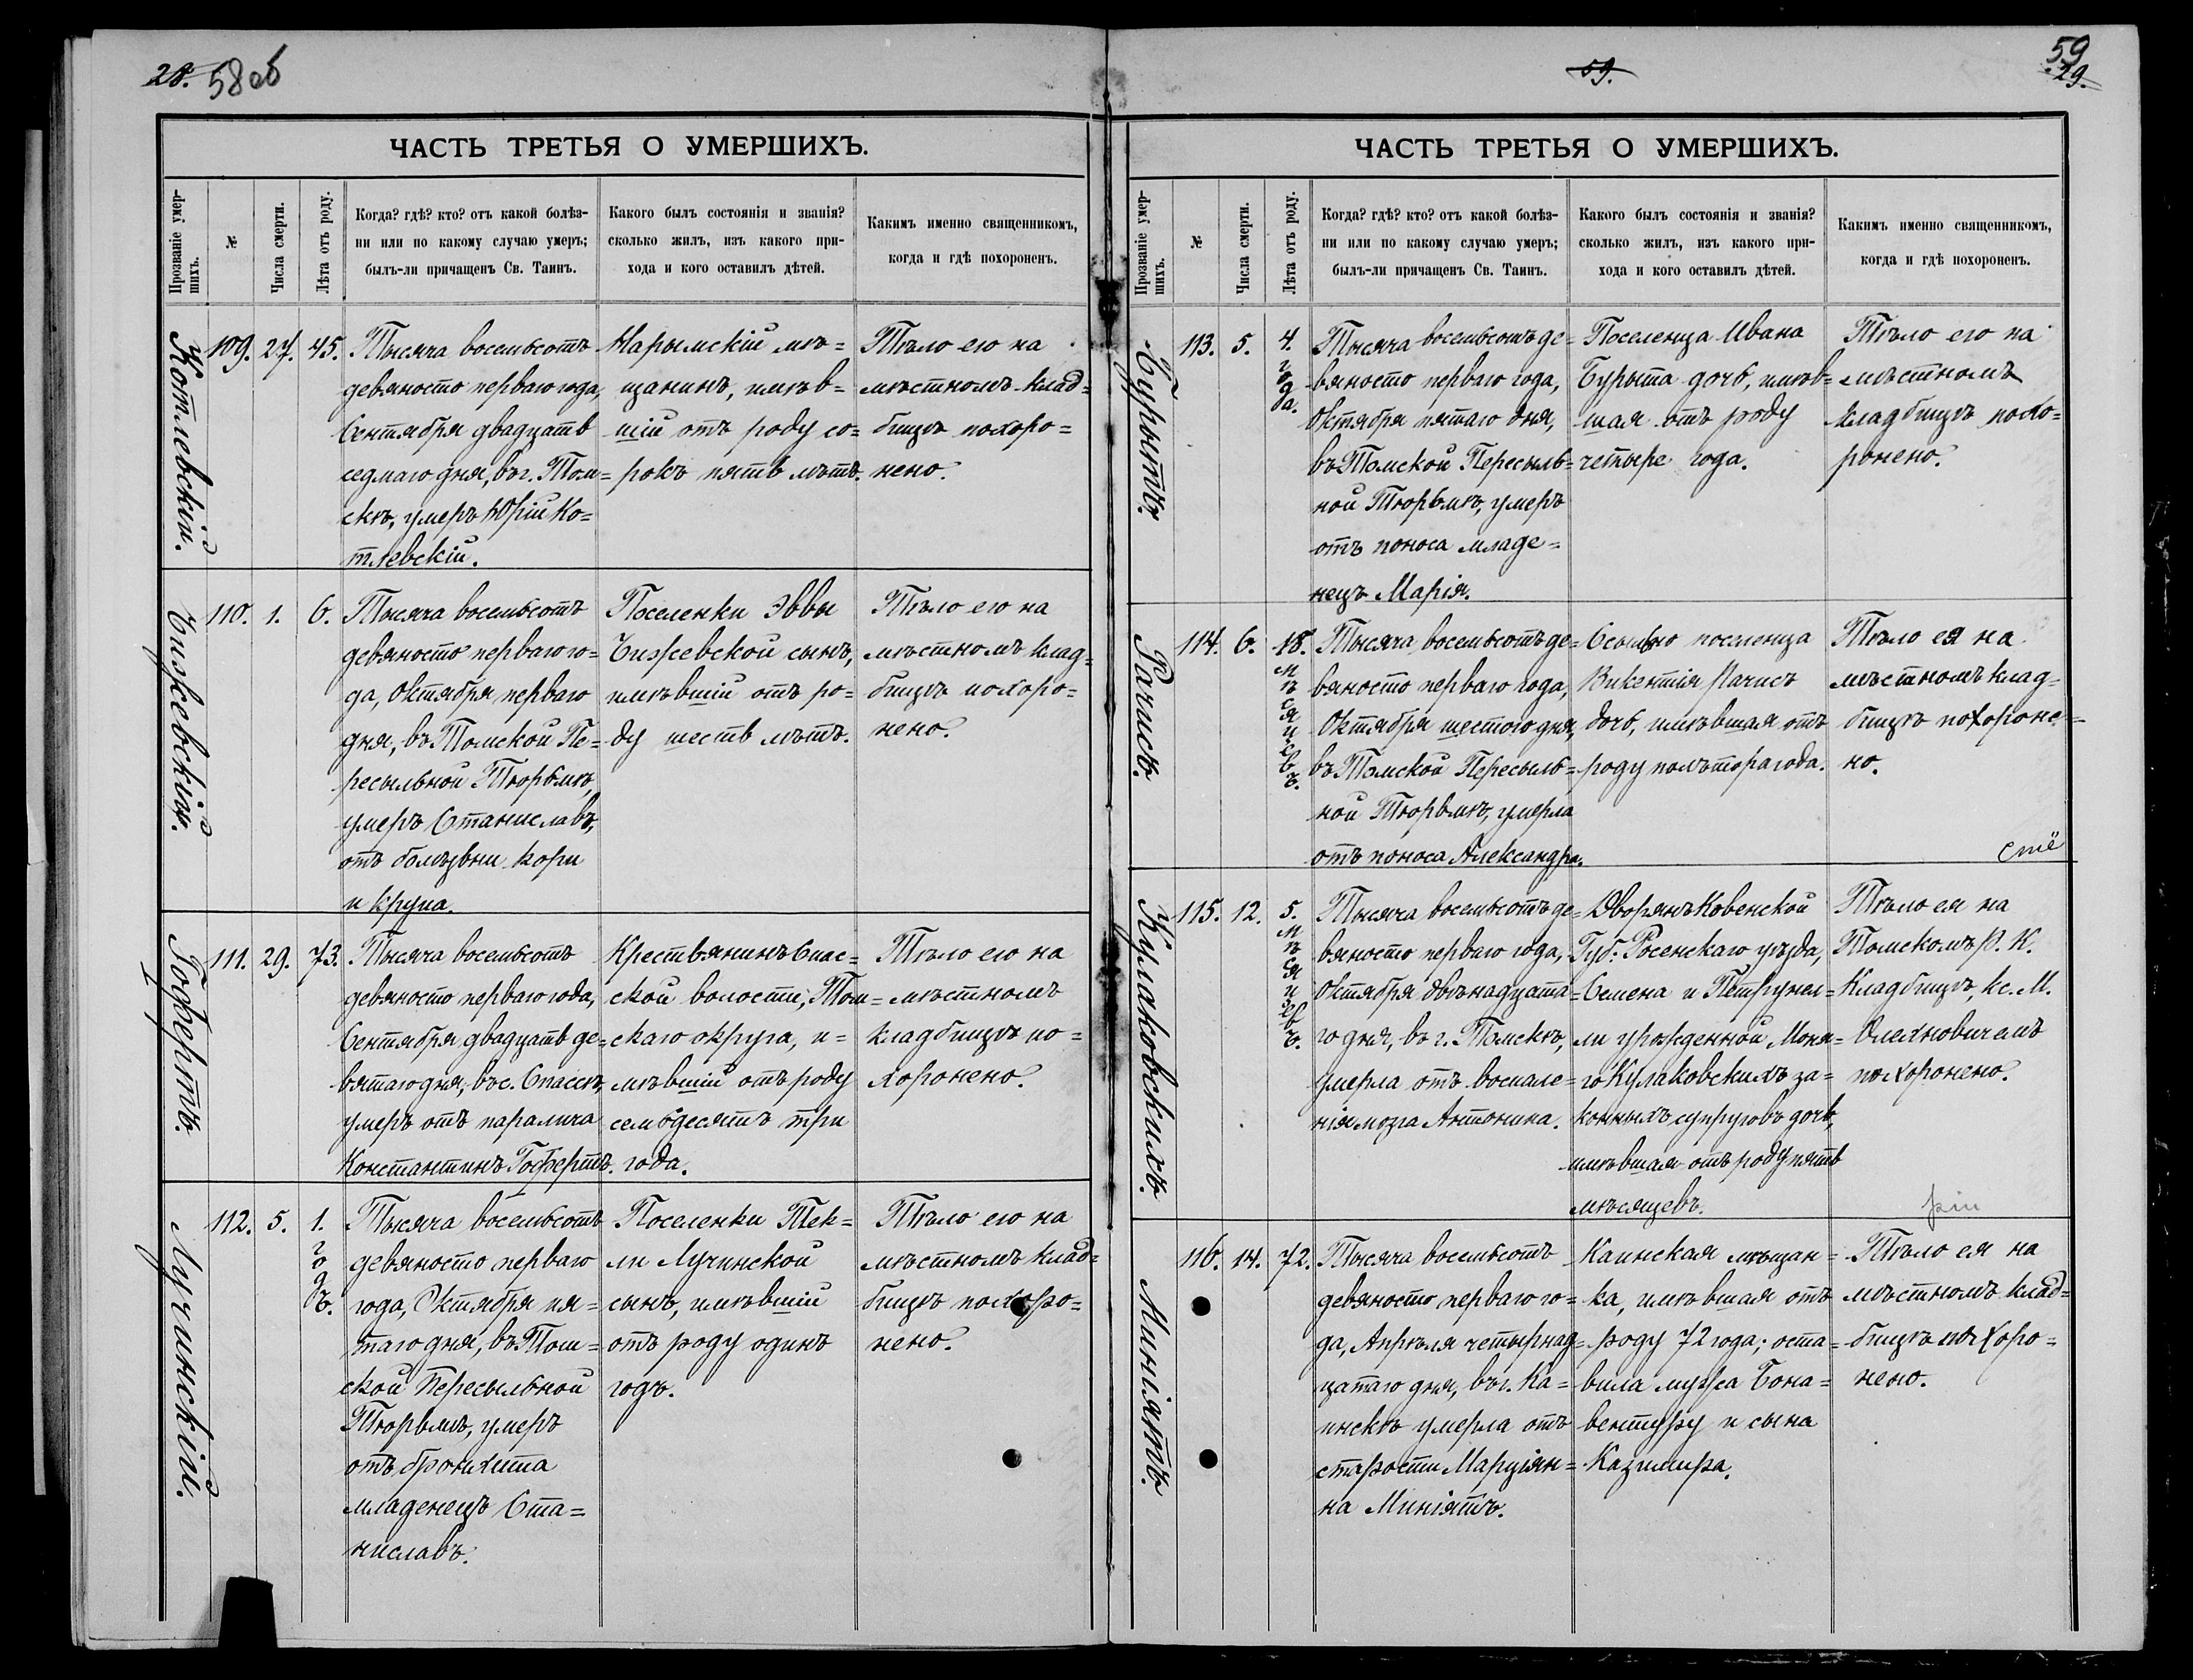 28. 58об
ЧАСТЬ ТРЕТЬЯ О УМЕРШИХЪ.
Прозваніе умер-
шихъ.
№
Числа смерти.
Лѣта отъ роду.
Когда? гдѣ? кто? отъ какой болѣз-
ни или по какому случаю умеръ;
былъ-ли причащенъ Св. Таинъ.
Какого былъ состоянія и званія?
сколько жилъ, изъ какого при-
хода и кого оставилъ дѣтей.
Какимъ именно священникомъ,
когда и гдѣ похороненъ.
Котлевскій.
109. 27. 45.
Тысяча восемьсотъ
девяносто перваго года,
Сентября двадцать
седмаго дня, въ г. Том=
скѣ, умеръ Юрій Ко=
тлевскій.
Нарымскій мѣ=
щанинъ, имѣв=
шій отъ роду со=
рокъ пять лѣтъ.
Тѣло его на
мѣстномъ клад=
бищѣ похоро=
нено.
Чижевскій.
110. 1. 6.
Тысяча восемьсотъ
девяносто перваго го=
да, Октября перваго
дня, въ Томской Пе=
ресыльной Тюрьмѣ,
умеръ Станиславъ,
отъ болѣзни кори
и крупа.
Поселенки Эввы
Чижевской сынъ,
имѣвшій отъ ро=
ду шесть лѣтъ.
Тѣло его на
мѣстномъ клад=
бищѣ похоро=
нено.
Гофертъ.
111. 29. 73.
Тысяча восемьсотъ
девяносто перваго года,
Сентября двадцать де=
вятаго дня, въ с. Спасскѣ,
умеръ отъ паралича
Константинъ Гофертъ.
Крестьянинъ Спас=
ской волости, Том=
скаго округа, и=
мѣвшій отъ роду
семьдесятъ три
года.
Тѣло его на
мѣстномъ
кладбищѣ по=
хоронено.
Лучинскій.
112. 5. 1. годъ.
Тысяча восемьсотъ
девяносто перваго
года, Октября пя=
таго дня, въ Том=
ской Пересыльной
Тюрьмѣ, умеръ
отъ бронхита
младенецъ Ста=
ниславъ.
Поселенки Тек=
ли Лучинской
сынъ, имѣвшій
отъ роду одинъ
годъ.
Тѣло его на
мѣстномъ клад=
бищѣ похоро=
нено.
59. 59
29.
ЧАСТЬ ТРЕТЬЯ О УМЕРШИХЪ.
Прозваніе умер-
шихъ.
№
Числа смерти.
Лѣта отъ роду.
Когда? гдѣ? кто? отъ какой болѣз-
ни или по какому случаю умеръ;
былъ-ли причащенъ Св. Таинъ.
Какого былъ состоянія и званія?
сколько жилъ, изъ какого при-
хода и кого оставилъ дѣтей.
Какимъ именно священникомъ,
когда и гдѣ похороненъ.
Бурытъ.
113. 5. 4. года.
Тысяча восемьсотъ де=
вяносто перваго года,
Октября пятаго дня,
въ Томской Пересыль=
ной Тюрьмѣ, умеръ
отъ поноса младе=
нецъ Марія.
Поселенца Ивана
Бурыта дочь, имѣв=
шая отъ роду
четыре года.
Тѣло его на
мѣстномъ
кладбищѣ похо=
ронено.
Рачисъ.
114. 6. 18. мѣсяцевъ.
Тысяча восемьсотъ де=
вяносто перваго года,
Октября шестого дня,
въ Томской Пересыль=
ной Тюрьмѣ, умерла
отъ поноса Александра.
поселенца
Викентія Рачисъ
дочь, имѣвшая отъ
роду полъторагода.
Тѣло ея на
мѣстномъ клад=
бищѣ похороне=
но.
Кулаковскихъ.
115. 12. 5. мѣсяцевъ.
Тысяча восемьсотъ де=
вяносто перваго года,
Октября двѣнадцата=
го дня, въ г. Томскѣ,
умерла отъ воспале=
нія мозга Антонина.
Дворянъ Ковенской
Губ. Росенскаго уѣзда,
Семена и Петрунел=
ли урожденной Моня=
го Кулаковскихъ за=
конныхъ супруговъ дочь,
имѣвшая отъ роду пять
мѣсяцевъ.
Тѣло ея на
Томскомъ Р. К.
Кладбищѣ, кс. М.
Олехновичемъ
похоронено.
Миніятъ.
116. 14. 72.
Тысяча восемьсотъ
девяносто перваго го=
да, Апрѣля четырнад=
цатаго дня, въ г. Ка=
инскѣ умерла отъ
старости Марціян=
на Миніятъ.
Каинская мѣщан=
ка, имѣвшая отъ
роду 72 года; оста=
вила мужа Бона=
вентуру и сына
Казимира.
Тѣло ея на
мѣстномъ клад=
бищѣ похоро=
нено.